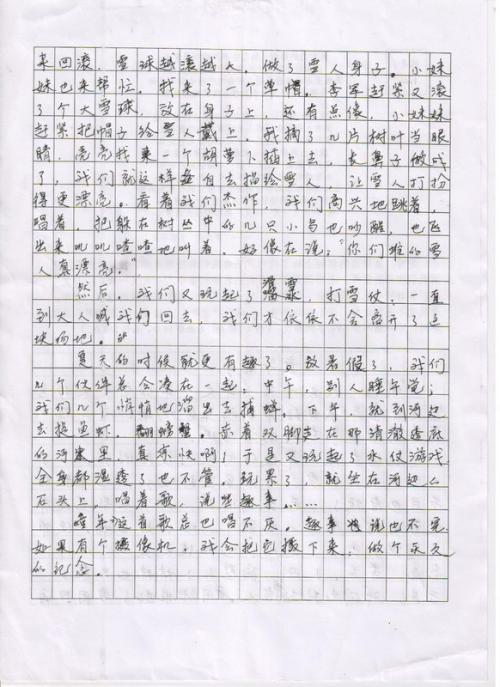 来回滚，雪球越滚越大。做了雪人身子。小妹
妹也来帮忙。找来了一个草帽。李军赶紧又滚
了个大雪球，放在身子上，还有点像，小妹妹
赶紧把帽子给雪人戴上，我摘了几片树叶当眼
睛，亮亮找来一个胡萝卜插上去，长鼻子做成
了，我们就这样各自去描绘雪人，让雪人打扮
得更漂亮。看着我们杰作，我们高兴地跳着，
唱着，把躲在树丛中的几只小鸟也吵醒，也飞
出来叽叽喳喳地叫着。好像在说：“你们堆的雪
人真漂亮。”
然后，我们又玩起了滑雪，打雪仗，一直
到大人喊我们回去，我们才依依不舍离开了这
块场地。
夏天的时候就更有趣了。放暑假了，我们
几个伙伴总会凑在一起，中午，别人睡午觉；
我们几个悄悄地溜出去捕蝉。下午，就到河边
去捉鱼虾、螃蟹。赤着双脚走在那清澈透底
的河里，真凉快啊！于是又玩起了水仗游戏
全身都湿透了也不管。玩累了，就坐在河边
石头上。唱着歌，说些趣事……
童年这首歌总也唱不厌。趣事也说不完
如果有个摄像机，我会把它摄下来，做个永久
的纪念。